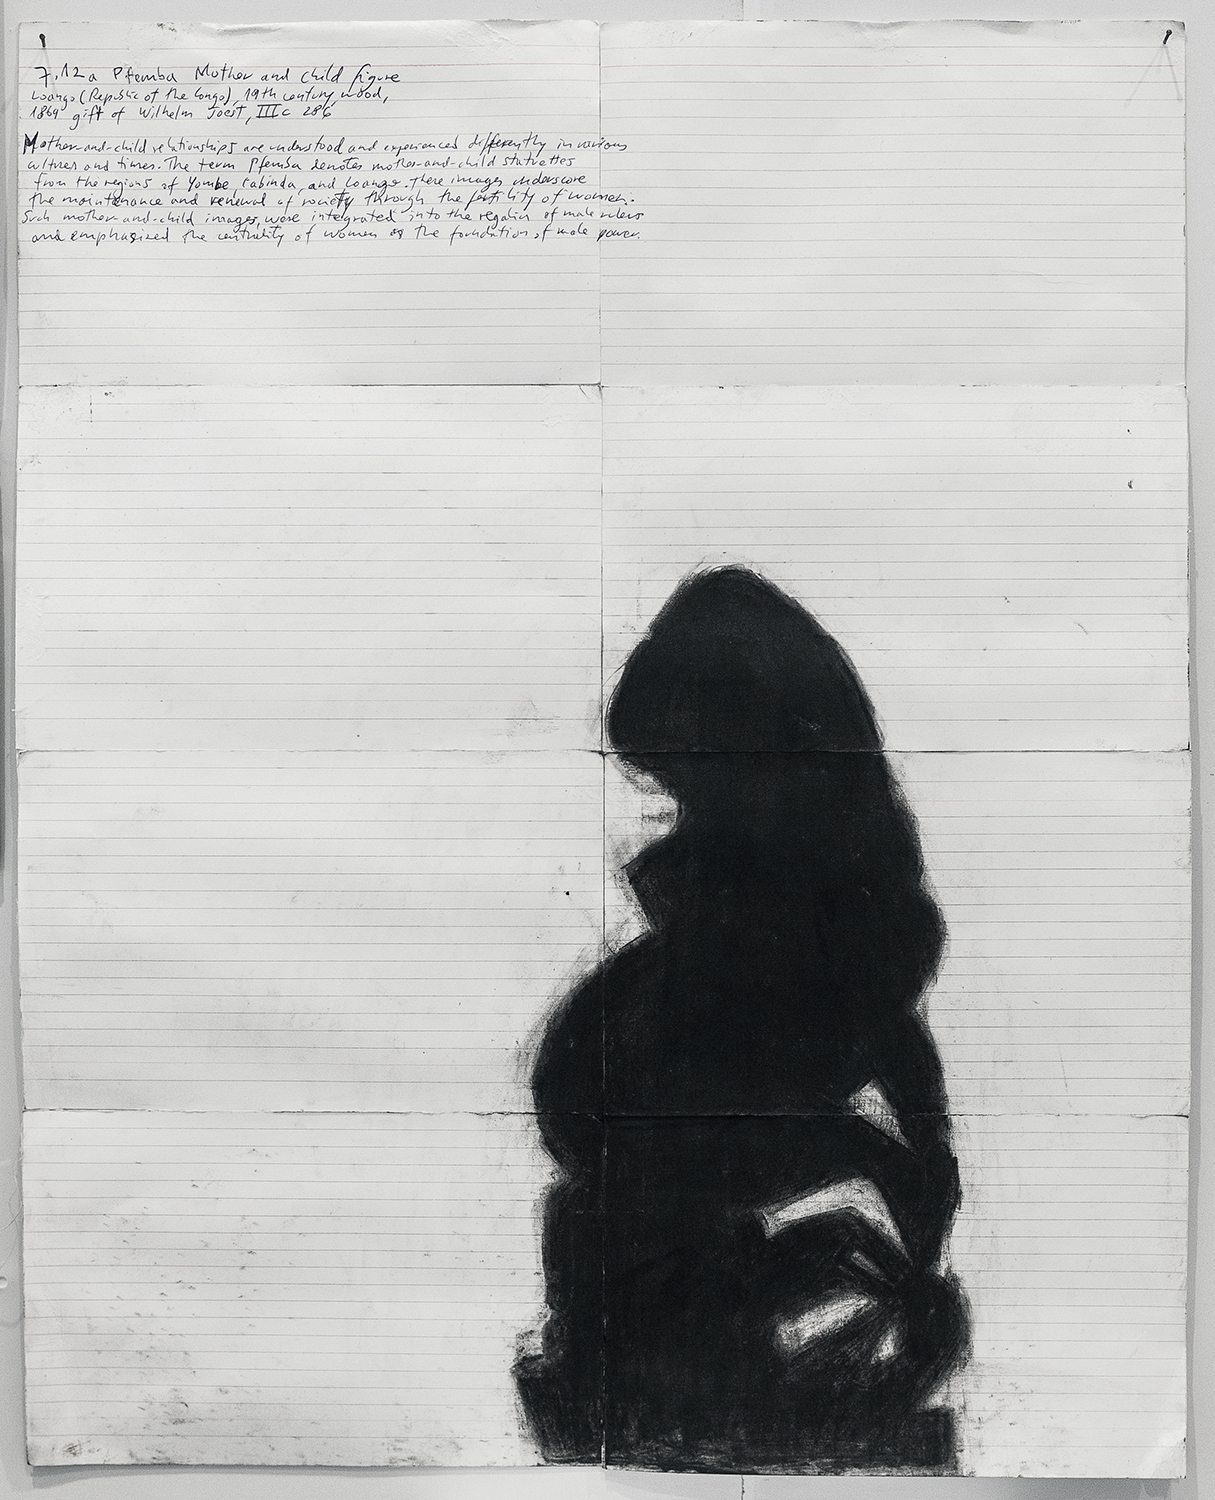 7.12 a Pfemba Mother and child figure
Loango (Republic of the Congo), 19th century, wood,
1869 gift of Wilhelm Joest, III c 286
Mother-and-child relationships are understood and experienced differently in various
cultures and times. The term Pfemba denotes mother-and-child statuettes
from the regions of Yombe Cabinda, and Loango. These images underscore
the maintenance and renewal of society through the fertility of women.
Such mother-and-child images, were integrated into the regalia of male rulers
and emphasized the centrality of women as the foundation of male power.